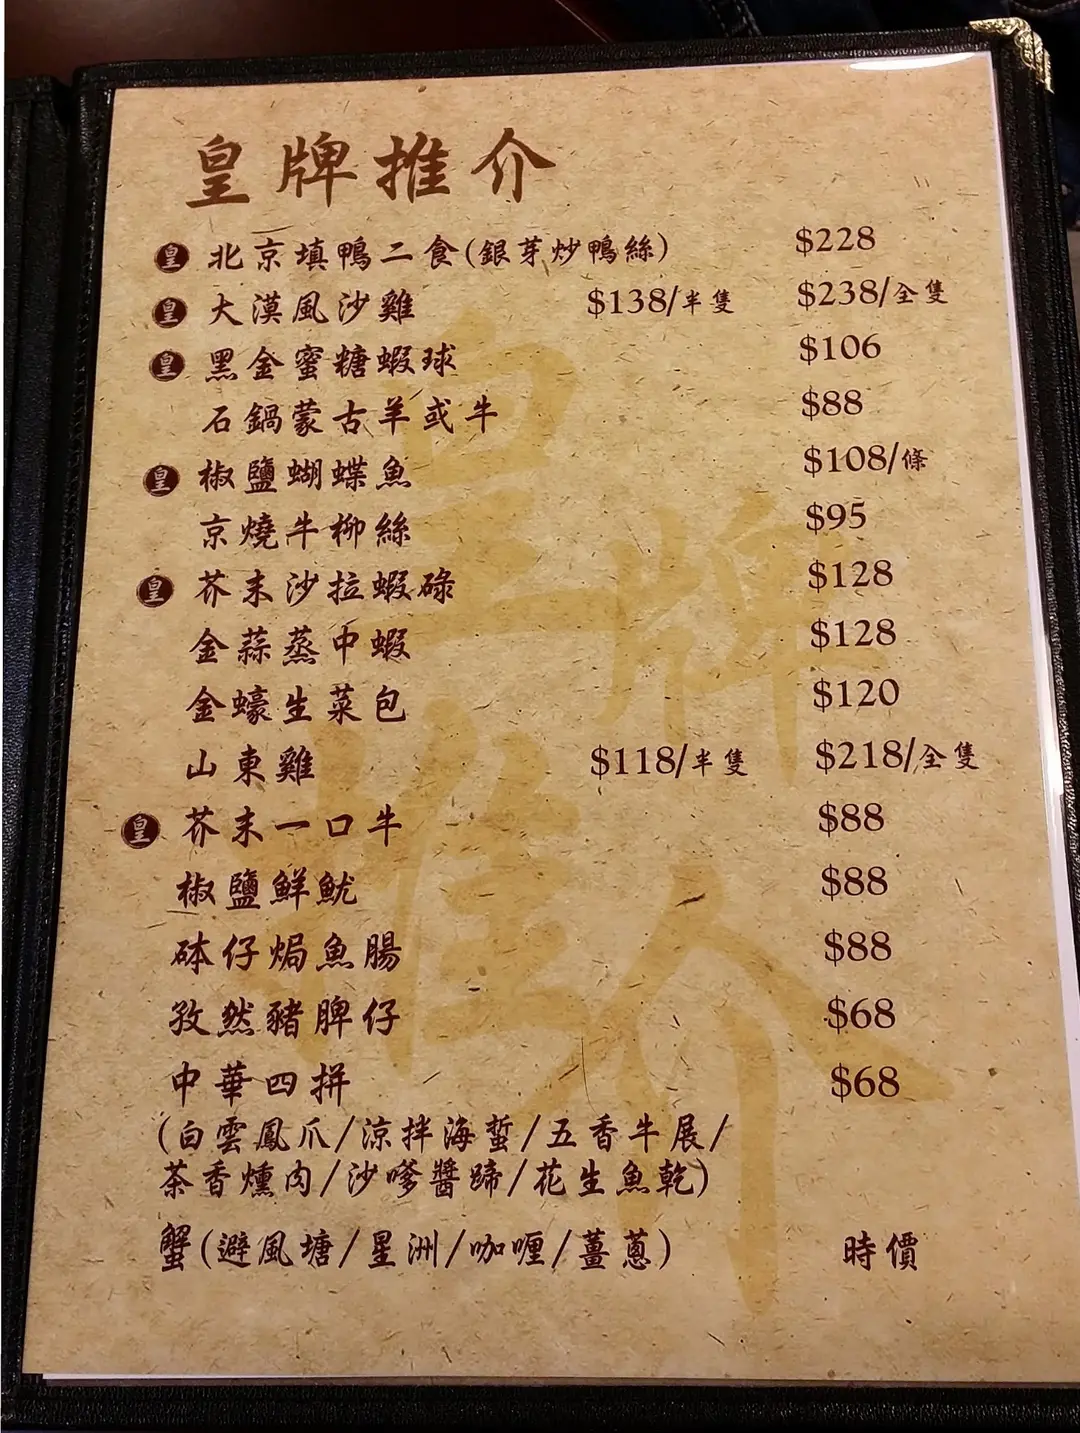 皇牌推介
皇 北京填鴨二食(銀芽炒鴨絲) $228
皇 大漠風沙雞 $138/半隻 $238/全隻
皇 黑金蜜糖蝦球 $106
石鍋蒙古羊或牛 $88
皇 椒鹽蝴蝶魚 $108/條
京燒牛柳絲 $95
皇 芥末沙拉蝦碌 $128
金蒜蒸中蝦 $128
金蠔生菜包 $120
山東雞 $118/半隻 $218/全隻
皇 芥末一口牛 $88
椒鹽鮮魷 $88
砵仔焗魚腸 $88
孜然豬脾仔 $68
中華四拼 $68
(白雲鳳爪/涼拌海蜇/五香牛展/
茶香燻肉/沙嗲醬蹄/花生魚乾)
蟹(避風塘/星洲/咖喱/薑蔥) 時價